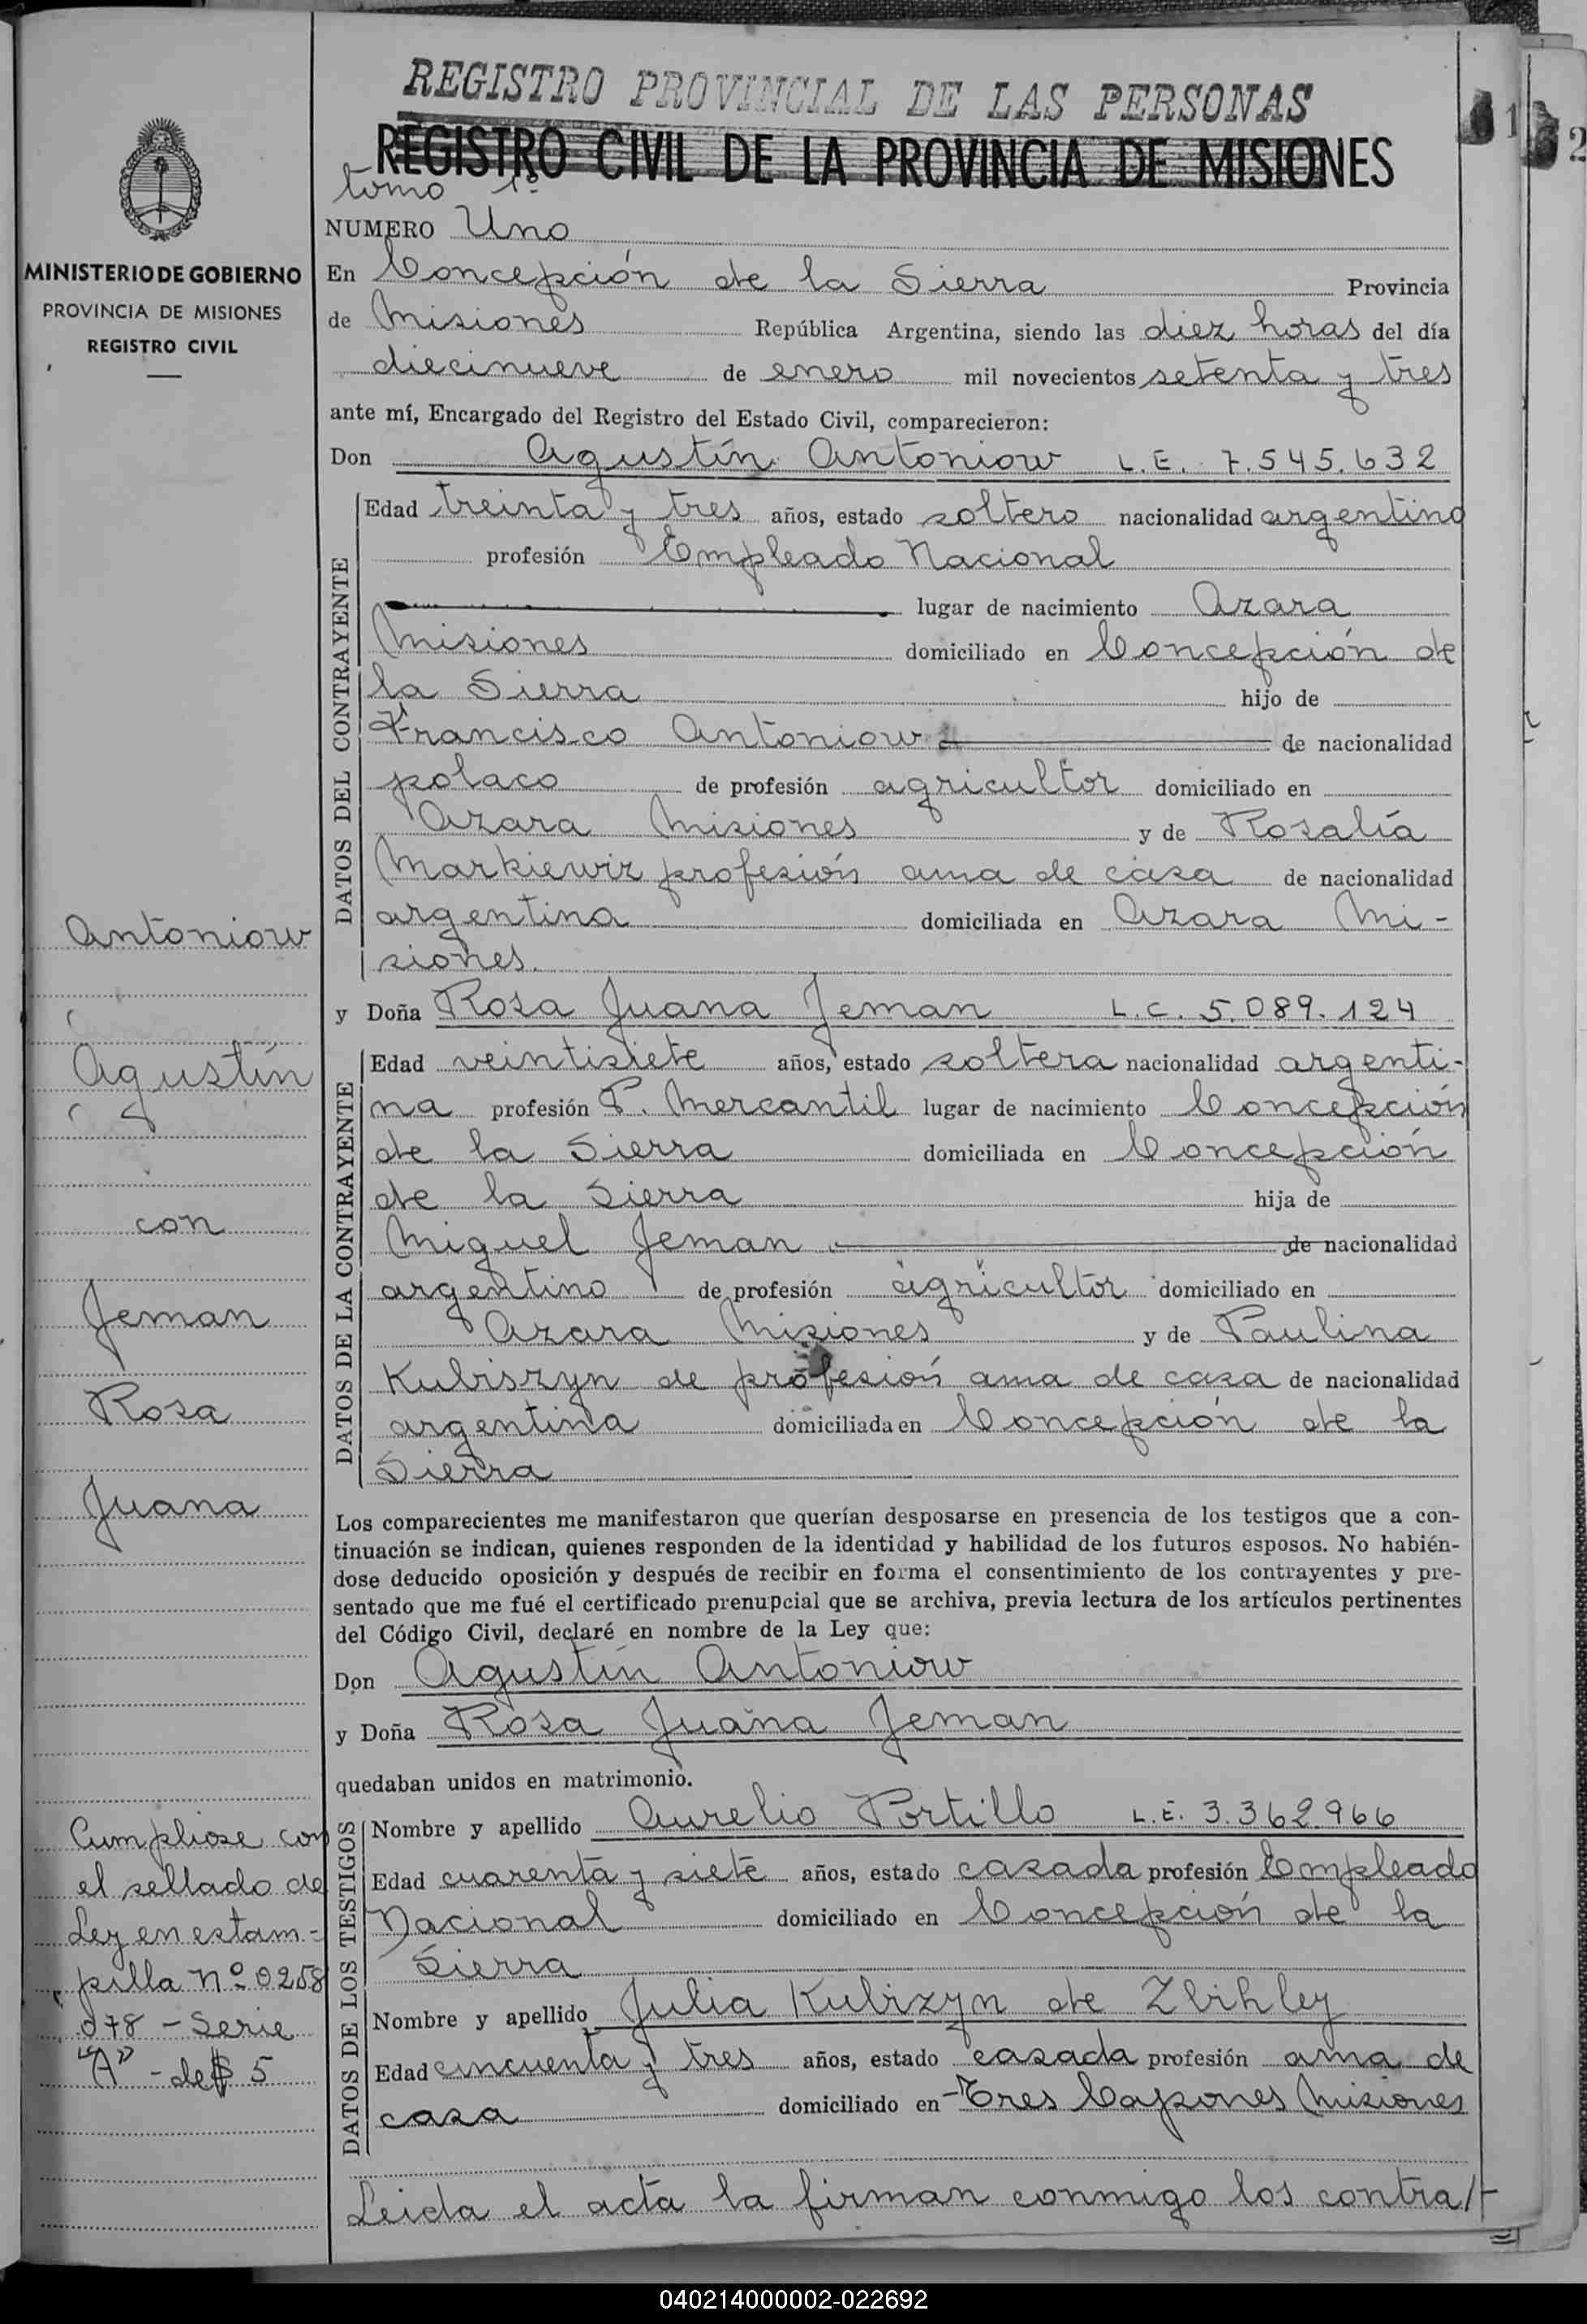 REGISTRO PROVINCIAL DE LAS PERSONAS
REGISTRO CIVIL DE LA PROVINCIA DE MISIONES
tomo 1º
MINISTERIO DE GOBIERNO
PROVINCIA DE MISIONES
REGISTRO CIVIL
NUMERO Uno
En Concepción de la Sierra Provincia
de Misiones República Argentina, siendo las diez horas del día
diecinueve de enero mil novecientos setenta y tres
ante mí, Encargado del Registro del Estado Civil, comparecieron:
Don Agustín Antoniow L.E. 7.545.632
DATOS DEL CONTRAYENTE
Edad treinta y tres años, estado soltero nacionalidad argentino
profesión Empleado Nacional
lugar de nacimiento Azara
Misiones domiciliado en Concepción de
la Sierra hijo de
Francisco Antoniow de nacionalidad
polaco de profesión agricultor domiciliado en
Azara Misiones y de Rosalía
Markiewiz profesión ama de casa de nacionalidad
argentina domiciliada en Azara Mi-
siones.
y Doña Rosa Juana Jeman L.C. 5.089.124
DATOS DE LA CONTRAYENTE
Edad veintisiete años, estado soltera nacionalidad argenti-
na profesión P. Mercantil lugar de nacimiento Concepción
de la Sierra domiciliada en Concepción
de la Sierra hija de
Miguel Jeman de nacionalidad
argentino de profesión agricultor domiciliado en
Azara Misiones y de Paulina
Kubiszyn de profesión ama de casa de nacionalidad
argentina domiciliada en Concepción de la
Sierra
Los comparecientes me manifestaron que querían desposarse en presencia de los testigos que a con-
tinuación se indican, quienes responden de la identidad y habilidad de los futuros esposos. No habién-
dose deducido oposición y después de recibir en forma el consentimiento de los contrayentes y pre-
sentado que me fué el certificado prenupcial que se archiva, previa lectura de los artículos pertinentes
del Código Civil, declaré en nombre de la Ley que:
Don Agustín Antoniow
y Doña Rosa Juana Jeman
quedaban unidos en matrimonio.
DATOS DE LOS TESTIGOS
Nombre y apellido Aurelio Portillo L.E. 3.362.966
Edad cuarenta y siete años, estado casada profesión Empleado
Nacional domiciliado en Concepción de la
Sierra
Nombre y apellido Julia Kubizyn de Zbihley
Edad cincuenta y tres años, estado casada profesión ama de
casa domiciliado en Tres Capones Misiones
Leida el acta la firman conmigo los contra//-
Antoniow
Agustín
con
Jeman
Rosa
Juana
Cumpliose con
el sellado de
Ley en estam=
pilla nº 0258
078 - Serie
"A" - de $ 5
040214000002-022692